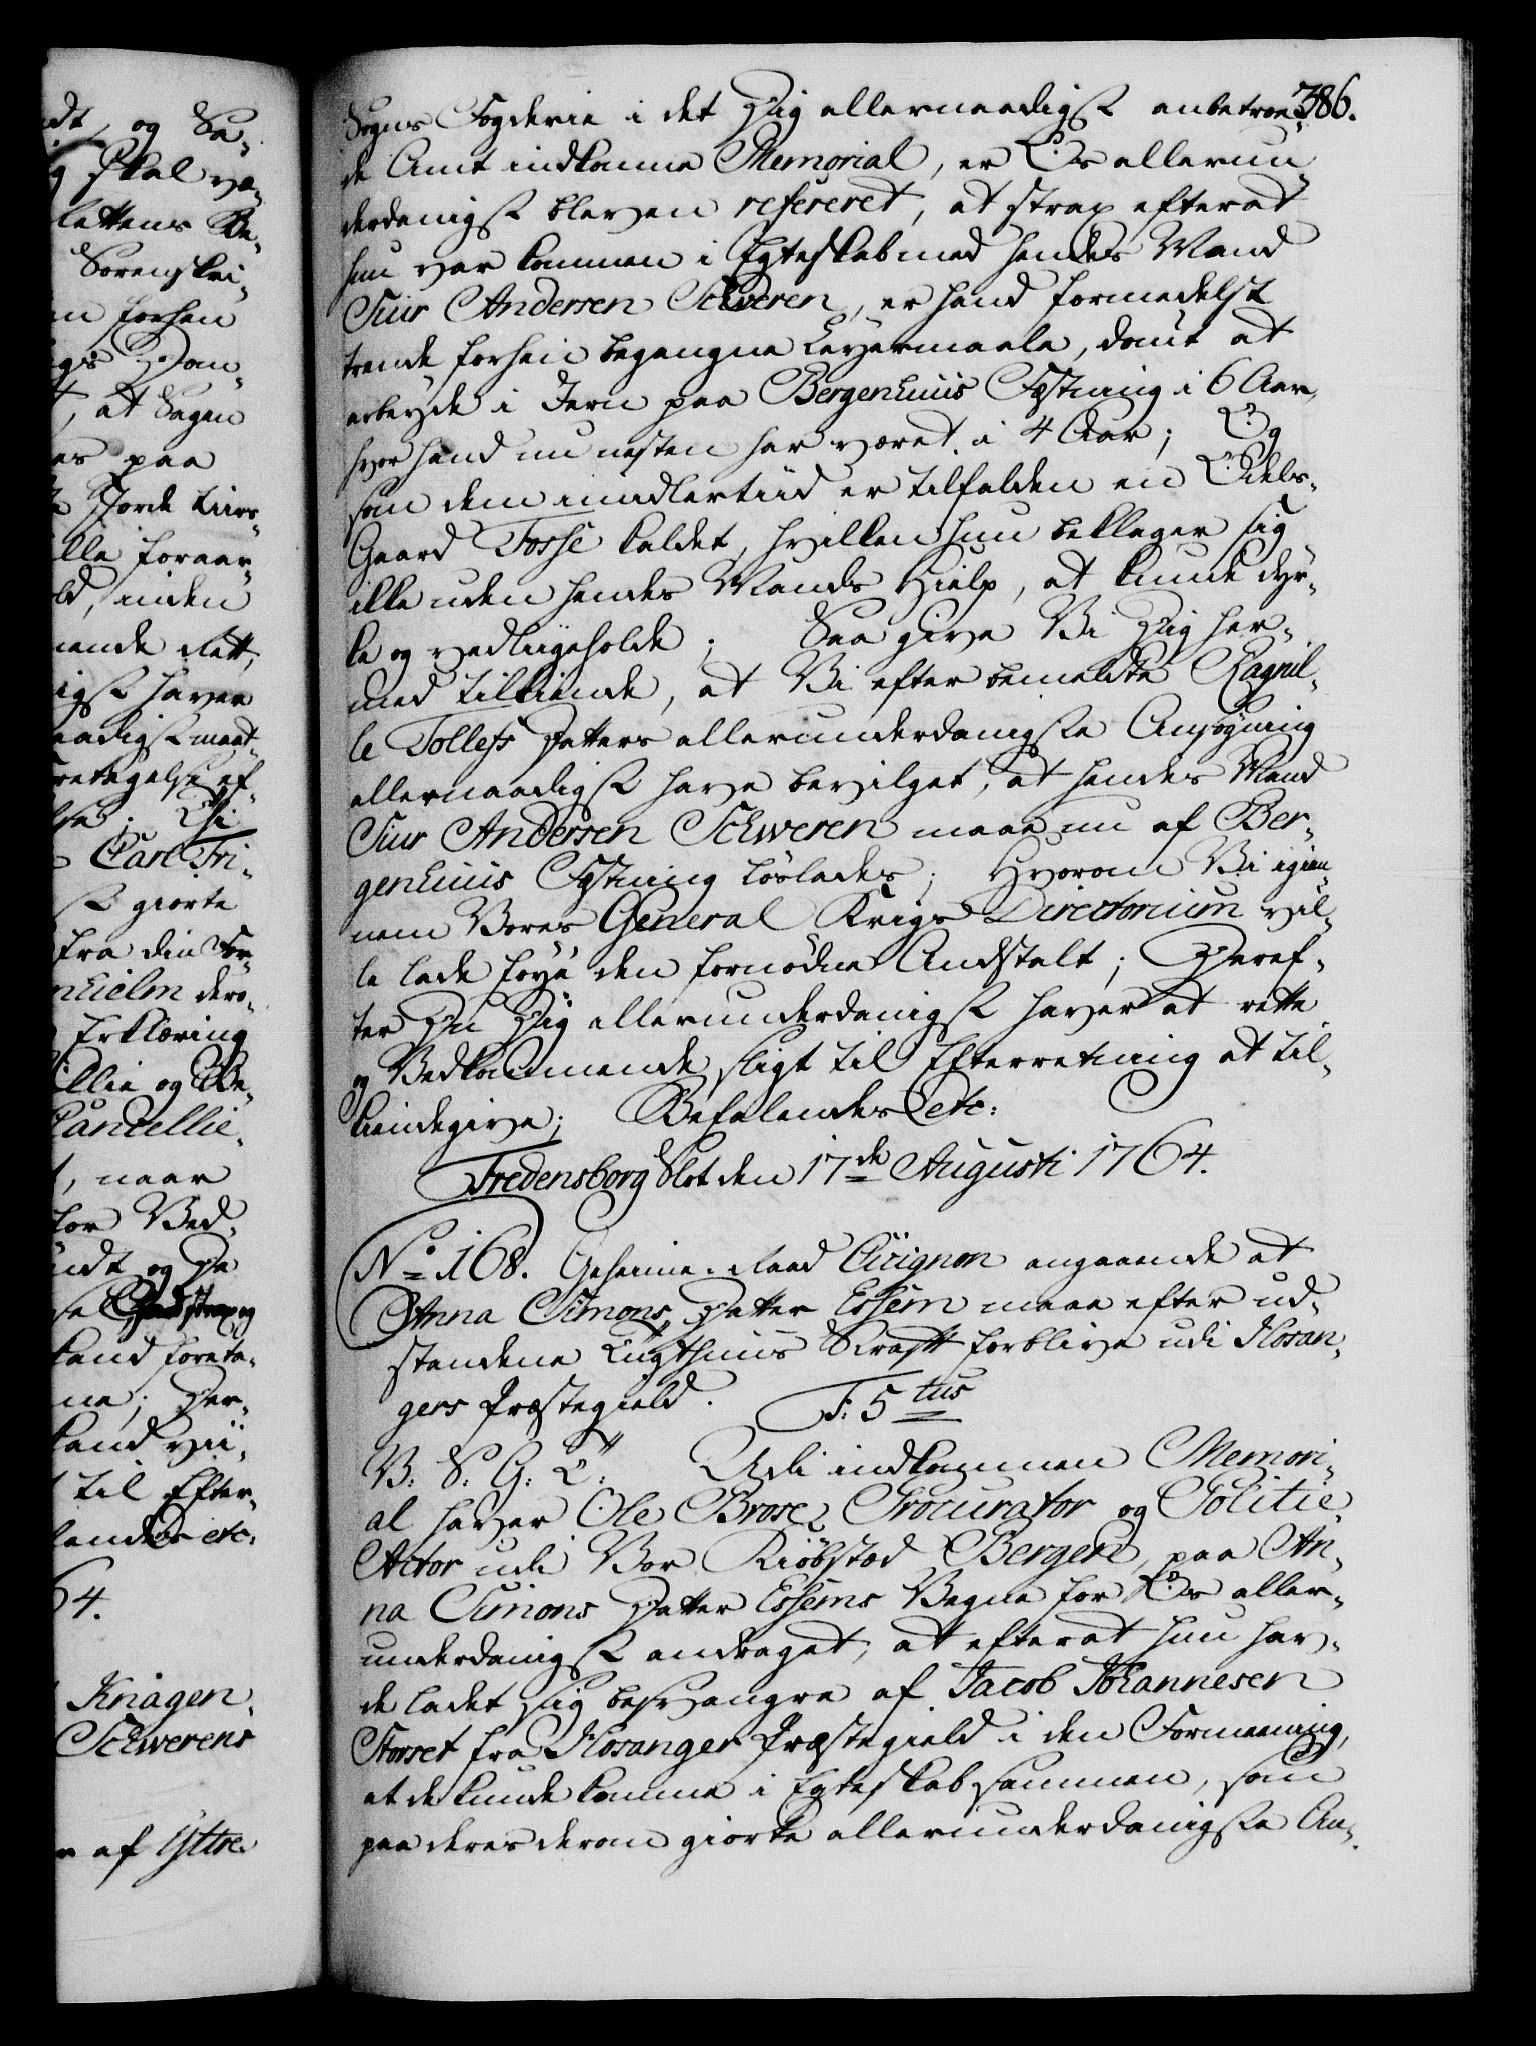 386.
Sogns Fogderie i det Dig allernaadigst anbetroe-
de Amt indkomne Memorial, er Os allerun-
derdanigst bleven refereret, at strax efterat
hun var kommen i Egteskab med hendes Mand
Siur Andersen Schveren, er hand formedelst
trende forhen begangne Leyermaale, dømt at
arbeyde i Jern paa Bergenhuus Fæstning i 6 Aar,
hvor hand nu næsten har været i 4 Aar; Og
som dem imidlertiid er tilfalden en Odels-
Gaard Fosse kaldet, hvilken hun beklager sig
ikke uden hendes Mands Hielp, at kunde dyr-
ke og vedligeholde; Saa give Vi Dig her-
med tilkiende, at Vi efter bemeldte Ragnil-
le Tollefs Datters allerunderdanigste Ansøgning
allernaadigst have bevilget, at hendes Mand
Siur Andersen Schweren maae nu af Ber-
genhuus Fæstning løslades; Hvorom Vi igien-
nem Vores General Krigs Directorium vil-
le lade føye den fornødne Andstalt; Deref-
ter Du Dig allerunderdanigst haver at rette
og Vedkommende sligt til Efterretning at til-
kiendegive; Befalendes etc:
Fredensborg Slot den 17de Augusti 1764.
No 168. Geheime-Raad Cicignon angaaende at
Anna Simons Datter Essem maae efter ud-
standene Tugthuus Straff forblive udi Hosan-
gers Præstegield. F: 5tus
V: S: G: T: Udi indkommen Memori-
al haver Ole Brose, Procurator og Politie
Actor udi Vor Kiøbstad Bergen, paa An-
na Simons Datter Essems Vegne for Os aller-
underdanigst andraget, at efterat hun hav-
de ladet sig besvangre af Jacob Johannesen
Storset fra Hosanger Præstegield i den Formeening,
at de kunde komme i Egteskab sammen, som
paa deres derom giorte allerunderdanigste An-